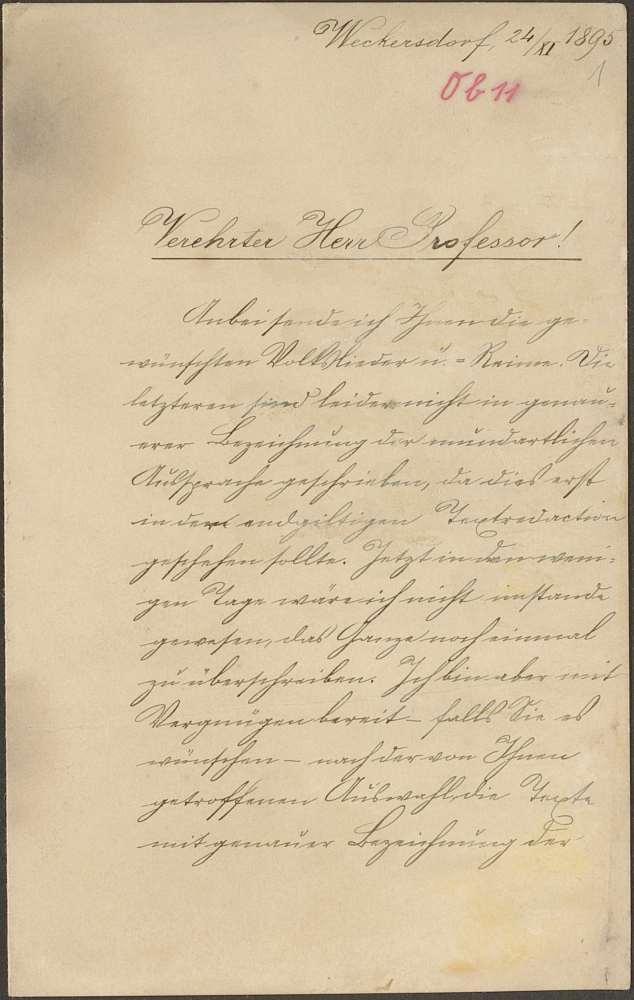 Weckersdorf, 24/XI 1895
1
Ob 11
Verehrter Herr Professor!
Anbei sende ich Ihnen die ge-
wünschten Volkslieder u. = Reime. Die
letzteren sind leider nicht in genau-
erer Bezeichnung der mundartlichen
Aussprache geschrieben, da dies erst
in der endgiltigen Textredaction
geschehen sollte. Jetzt in den weni-
gen Tage wäre ich nicht imstande
gewesen, das Ganze noch einmal
zu überschreiben. Ich bin aber mit
Vergnügen bereit – falls Sie es
wünschen – nach der von Ihnen
getroffenen Auswahl die Texte
mit genauer Bezeichnung der